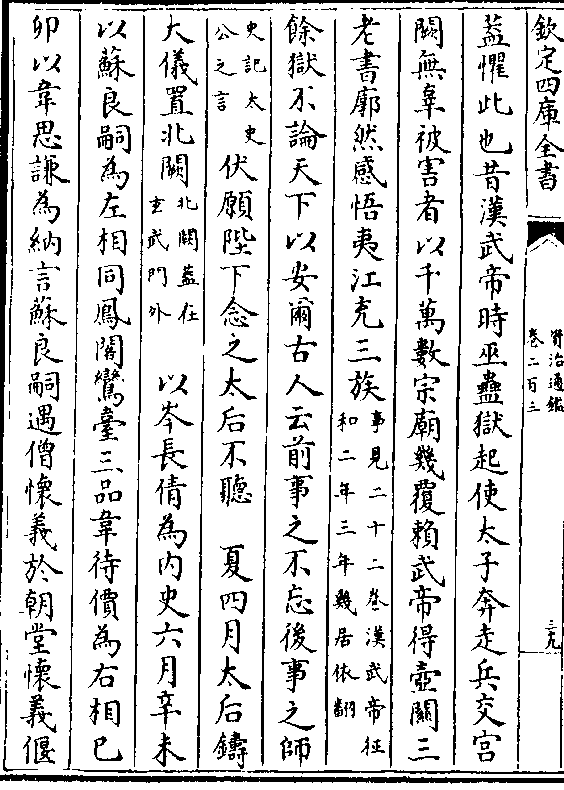 欽定四庫全書
資治通鑑
卷二百三
蓋懼此也昔漢武帝時巫蠱獄起使太子奔走兵交宮
闕無辜被害者以千萬數宗廟幾覆賴武帝得壺關三
老書廓然感悟夷江充三族事見二十二卷漢武帝征和二年三年幾居依翻
餘獄不論天下以安爾古人云前事之不忘後事之師
史記太史公之言伏願陛下念之太后不聽 夏四月太后鑄
大儀置北闕北闕蓋在玄武門外 以岑長倩為内史六月辛未
以蘇良嗣為左相同鳳閣鸞臺三品韋待價為右相己
卯以韋思謙為納言蘇良嗣遇僧懷義於朝堂懷義偃